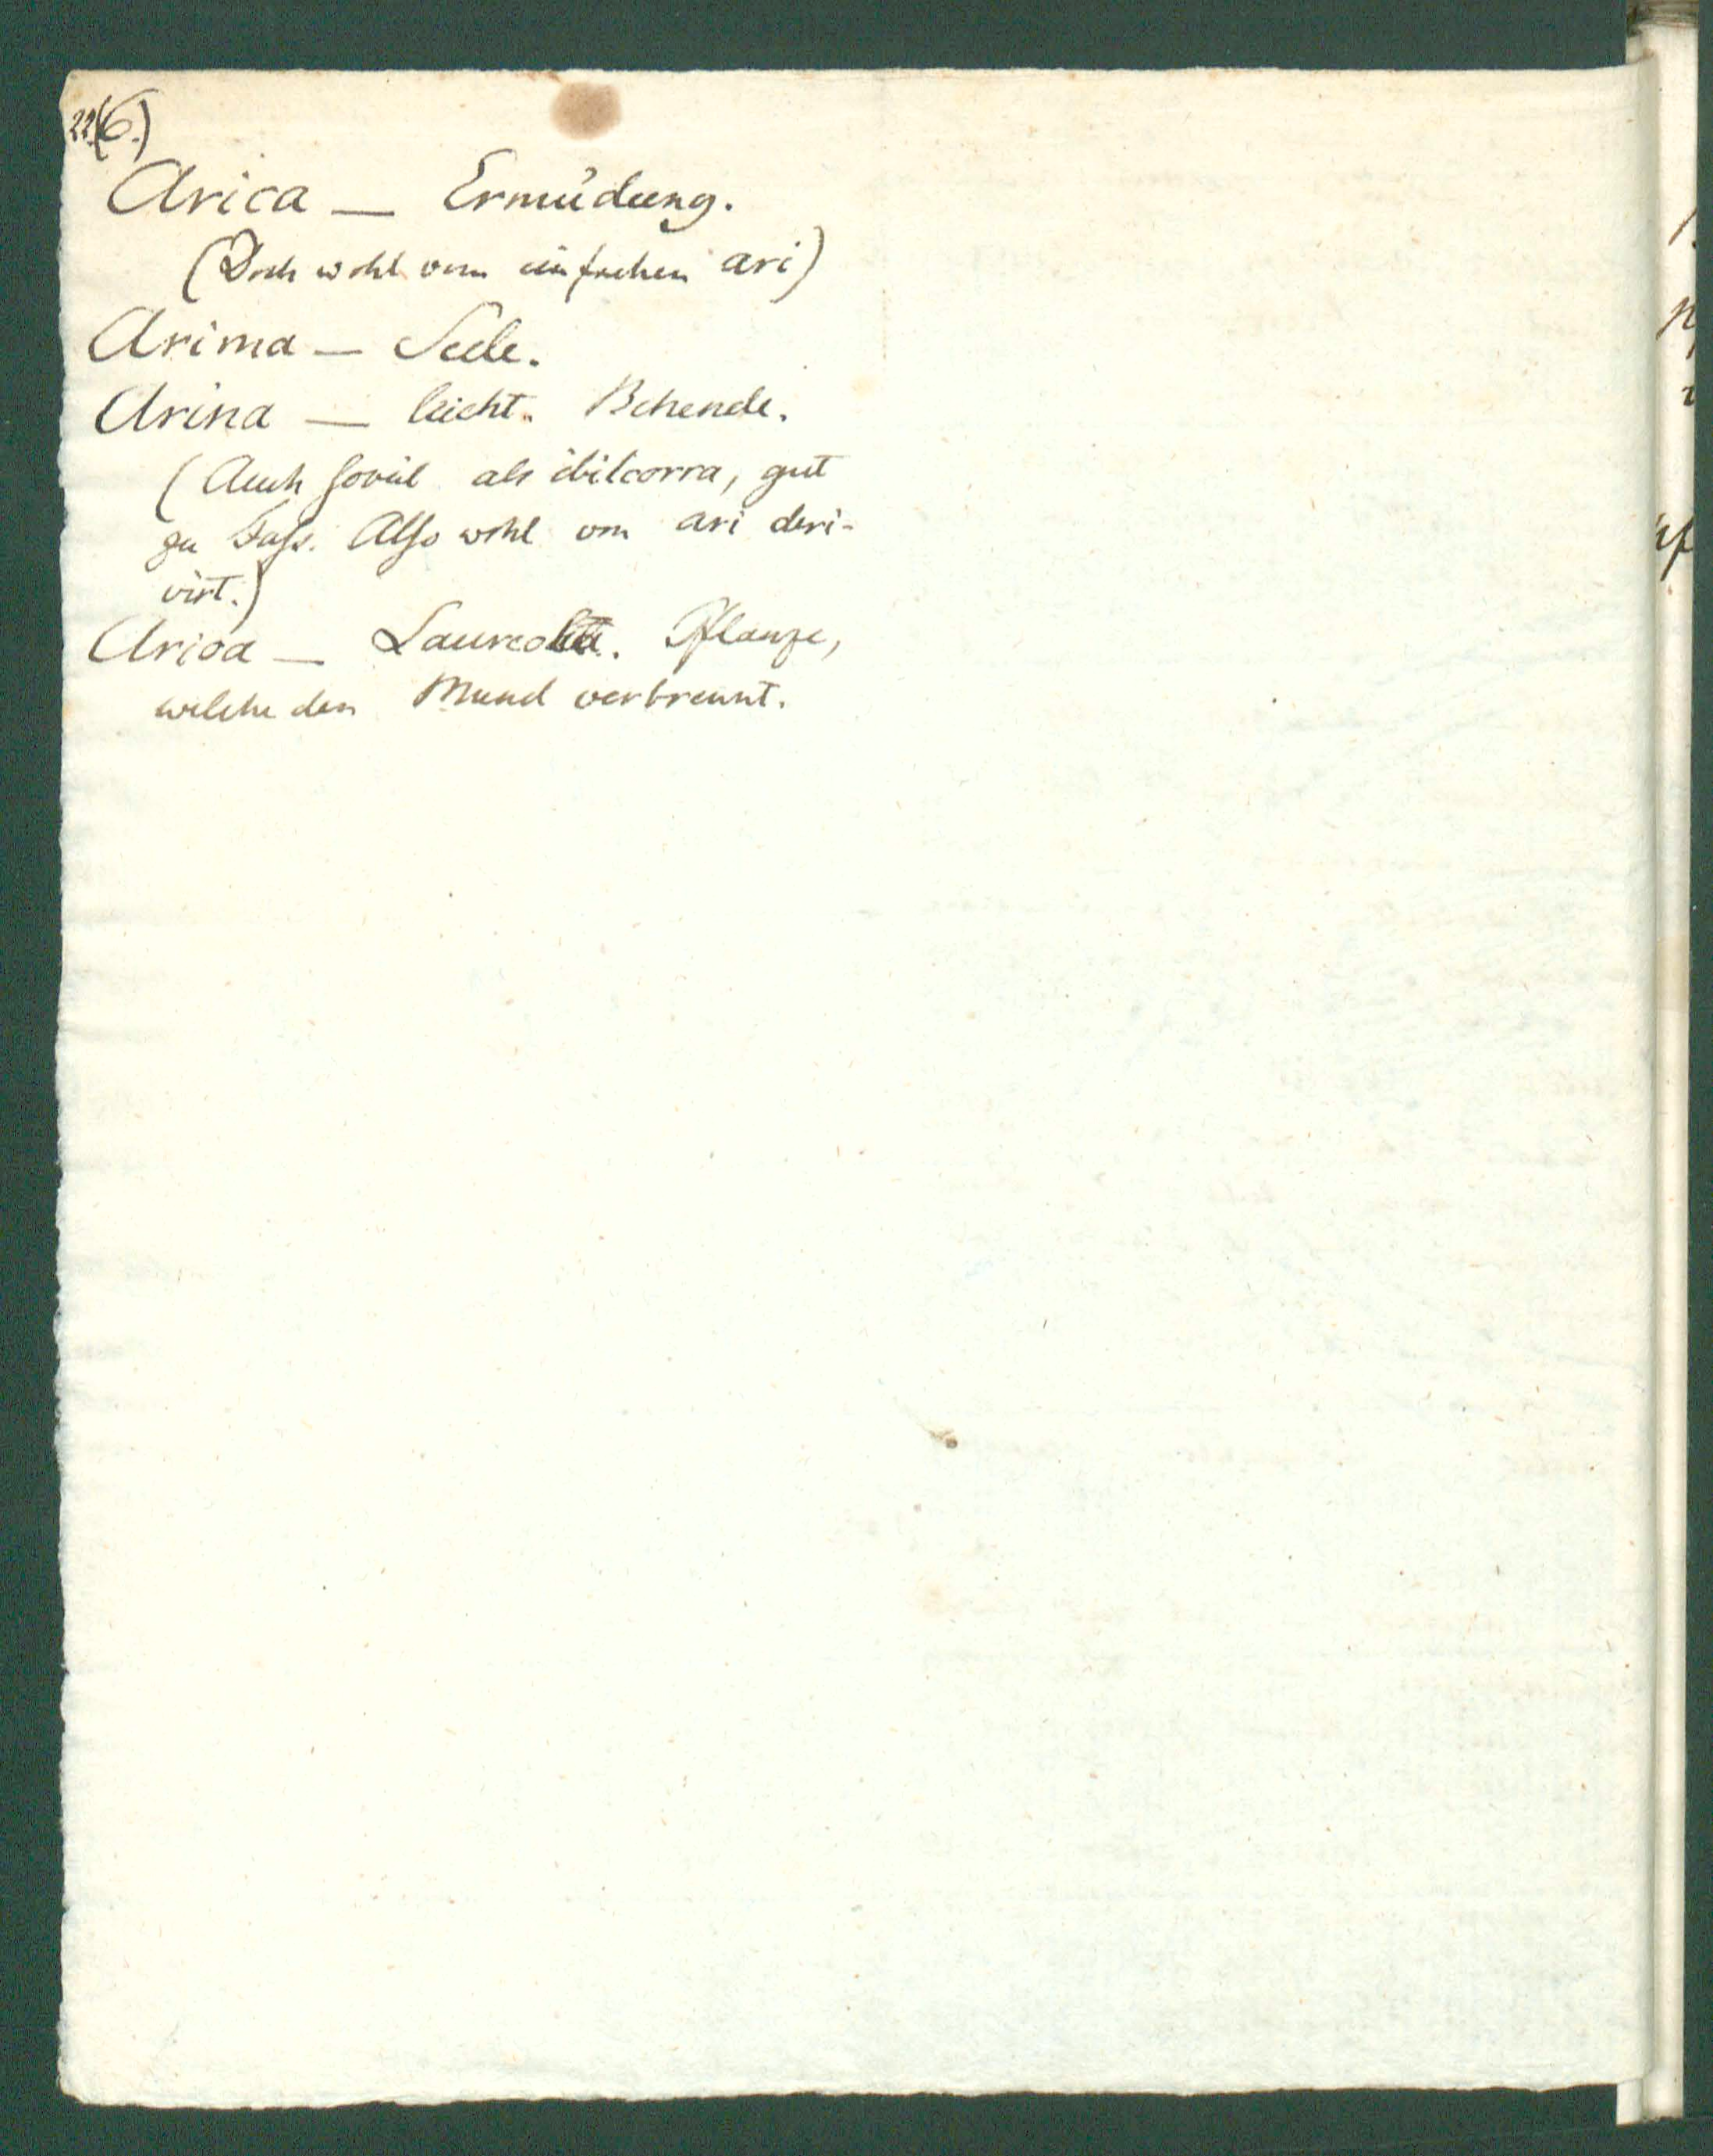 22.(6.)
Arica — Ermüdung.
(Doch wohl vom einfachen ari)
Arima — Seele.
Arina — leicht. Behende.
(Auch soviel als ibilcorra, gut
zu Fuss. Also wohl von ari deri-
virt.)
Arioa — Pflanze,
welche den Mund verbrennt.